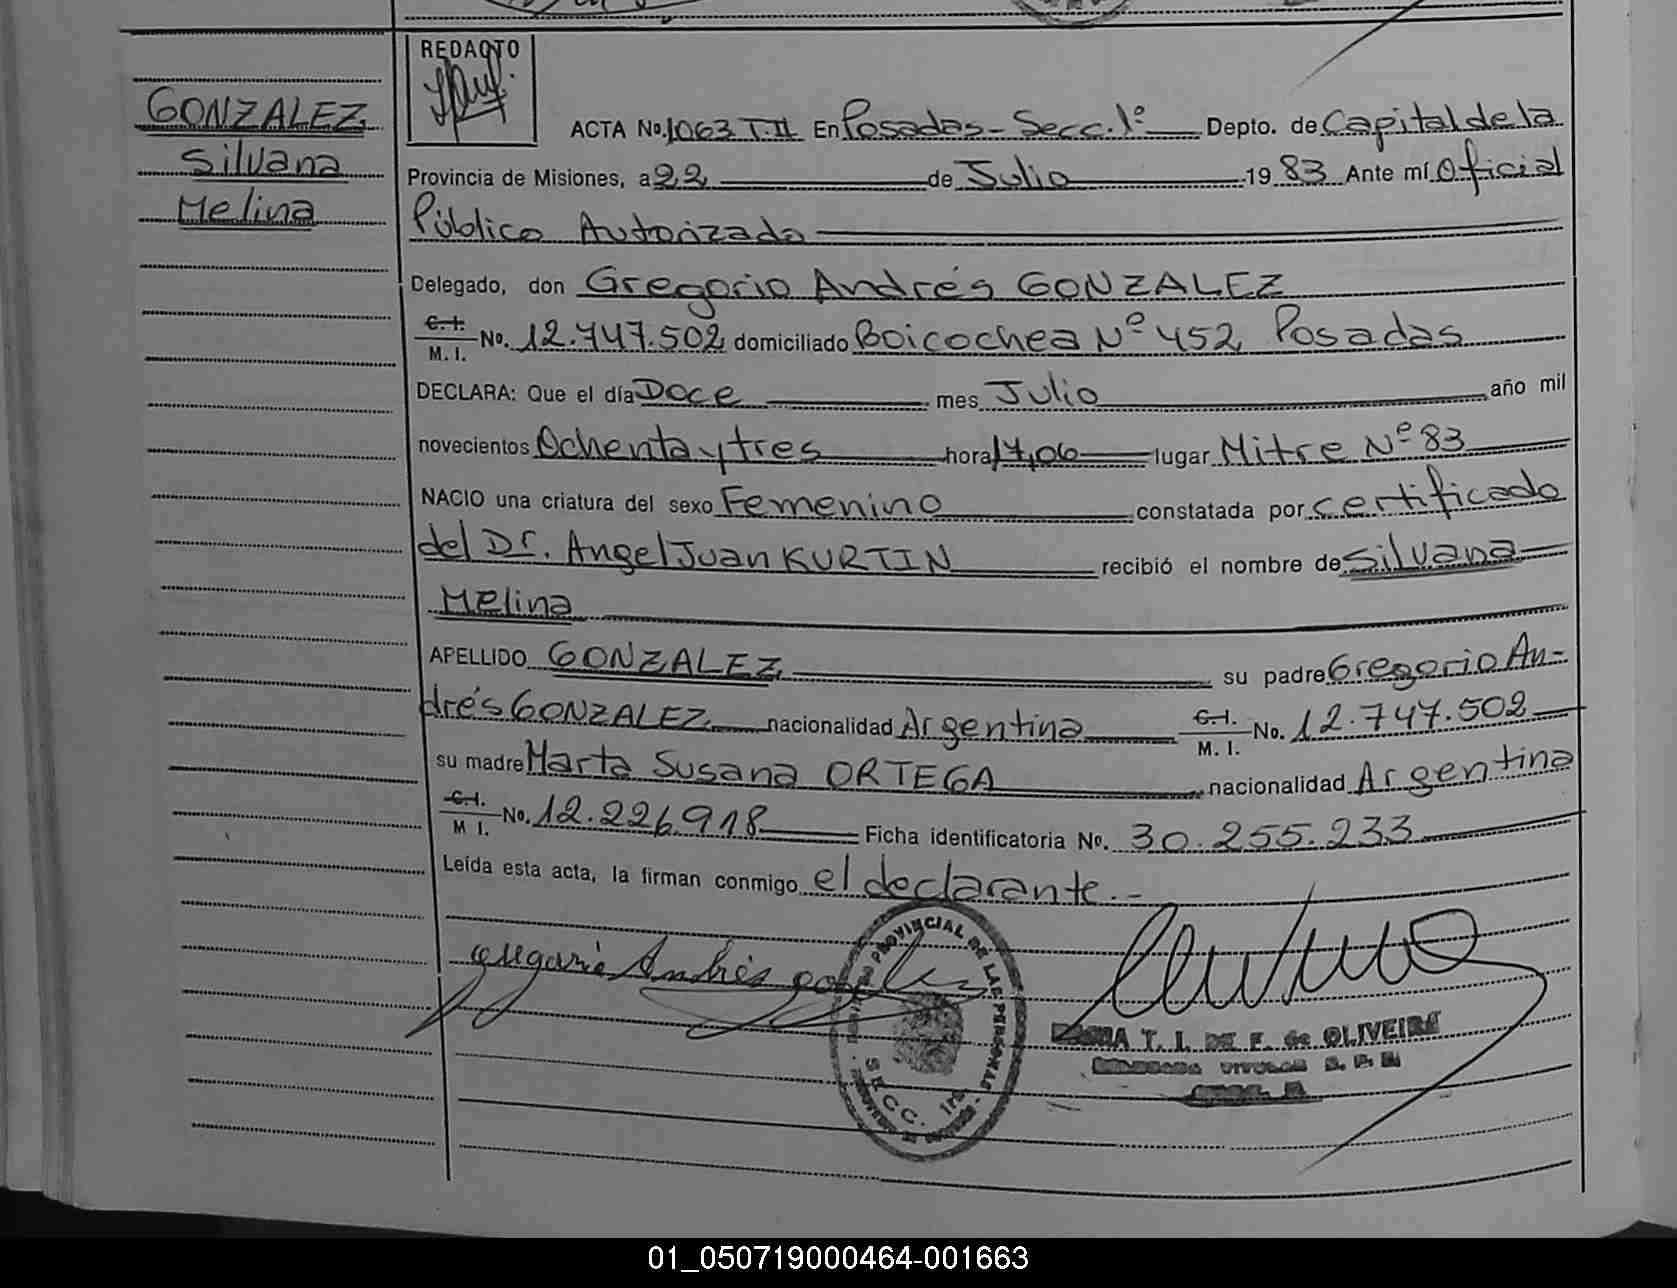 REDACTO
GONZALEZ
Silvana
Melina
ACTA No. 1063 T.II En Posadas - Secc. 1º Depto. de Capital de la
Provincia de Misiones, a 22 de Julio 1983 Ante mí Oficial
Público Autorizado
Delegado, don Gregorio Andrés GONZALEZ
C.I. M.I. No. 12.747.502 domiciliado Boicochea Nº 452 Posadas
DECLARA: Que el día Doce mes Julio año mil
novecientos Ochenta y tres hora 17,06 lugar Mitre Nº 83
NACIO una criatura del sexo Femenino constatada por certificado
del Dr. Angel Juan KURTIN recibió el nombre de Silvana
Melina
APELLIDO GONZALEZ su padre Gregorio An-
drés GONZALEZ nacionalidad Argentina C.I. M.I. No. 12.747.502
su madre Marta Susana ORTEGA nacionalidad Argentina
C.I. M I. No. 12.226.918 Ficha identificatoria No. 30.255.233
Leída esta acta, la firman conmigo el declarante.-
Gregorio Andrés
PROVINCIAL DE LAS PERSONAS
SECC. 1ra
T. I. DE F. de OLIVEIRA
01_050719000464-001663